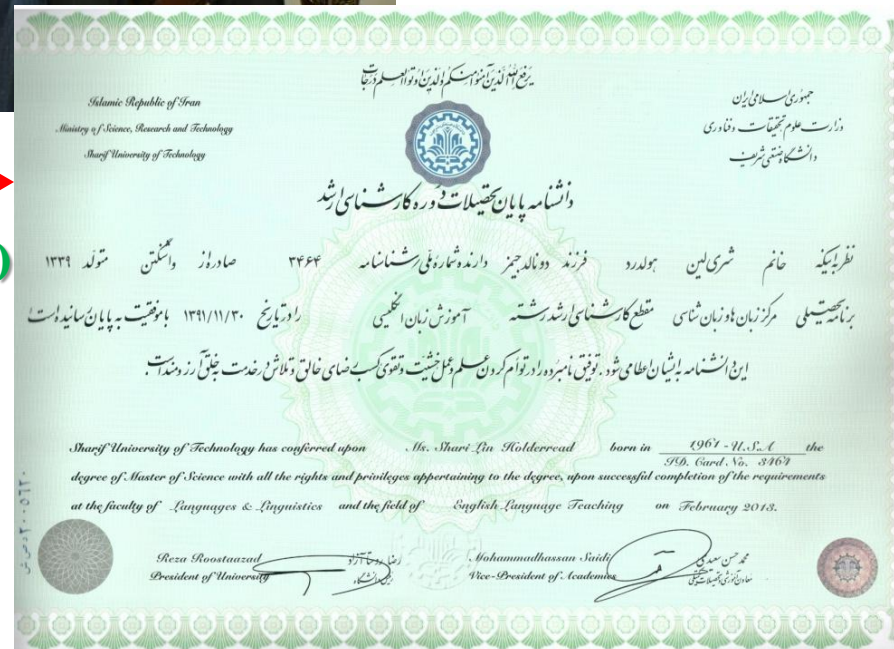 یرفع الله الذین آمنوا منکم والذین اوتوا العلم درجات
Islamic Republic of Iran
Ministry of Science, Research and Technology
Sharif University of Technology
جمهوری اسلامی ایران
وزارت علوم تحقیقات و فناوری
دانشگاه صنعتی شریف
دانشنامه پایان تحصیلات دوره کارشناسی ارشد
نظر به اینکه خانم شری لین هولدرد فرزند دونالد جیمز دارنده شماره ملی / شناسنامه ۳۴۶۴ صادره از واشنگتن متولد ۱۳۳۹
برنامه تحصیلی مرکز زبان ها و زبان شناسی مقطع کارشناسی ارشد رشته آموزش زبان انگلیسی را در تاریخ ۱۳۹۱/۱۱/۳۰ با موفقیت به پایان رسانیده است
این دانشنامه به ایشان اعطا می شود . توفیق نامبرده را در توأم کردن علم و عمل خشیت و تقوی کسب رضای خالق و تلاش در خدمت به خلق آرزومند است .
Sharif University of Technology has conferred upon Ms. Shari Lin Holderread born in 1961 - U.S.A the
ID. Card No. 3464
degree of Master of Science with all the rights and privileges appertaining to the degree, upon successful completion of the requirements
at the faculty of Languages & Linguistics and the field of English Language Teaching on February 2013.
Reza Roostaazad
President of University
رضا روستا آزاد
رئیس دانشگاه
Mohammadhassan Saidi
Vice-President of Academics
محمد حسن سعیدی
معاون آموزشی و تحصیلات تکمیلی